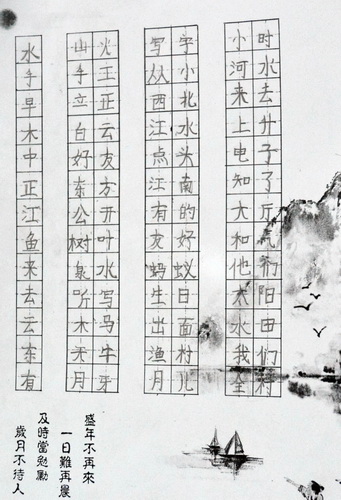 水 山火 写字 小时
手 手王 从小 河水
早 立正 西北 来去
木 白云 江水 上升
中 好友 点头 电子
正 东方 江南 知了
江 公开 有的 大斤
鱼 树叶 友好 和气
来 泉水 蚂蚁 他们
去 听写 生日 太阳
云 木马 出面 水田
东 天牛 渔村 我们
有 月牙 月儿 全村
盛年不再來
一日難再晨
及時當勉勵
歲月不待人